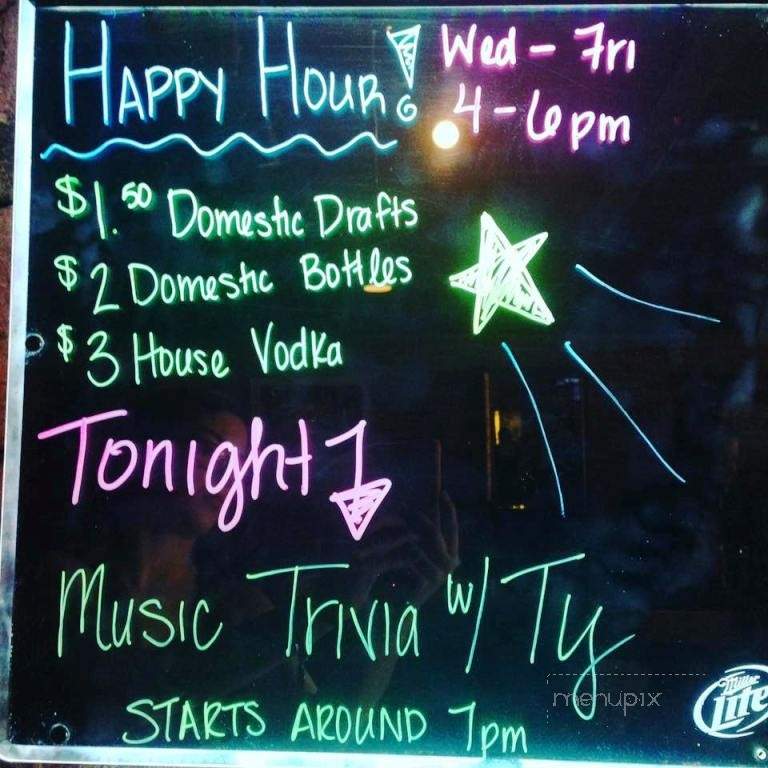 Happy Hour!
Wed - Fri
4 - 6pm
$1.50 Domestic Drafts
$2 Domestic Bottles
$3 House Vodka
Tonight
Music Trivia w/ Ty
STARTS AROUND 7pm
menupix
Miller
Lite